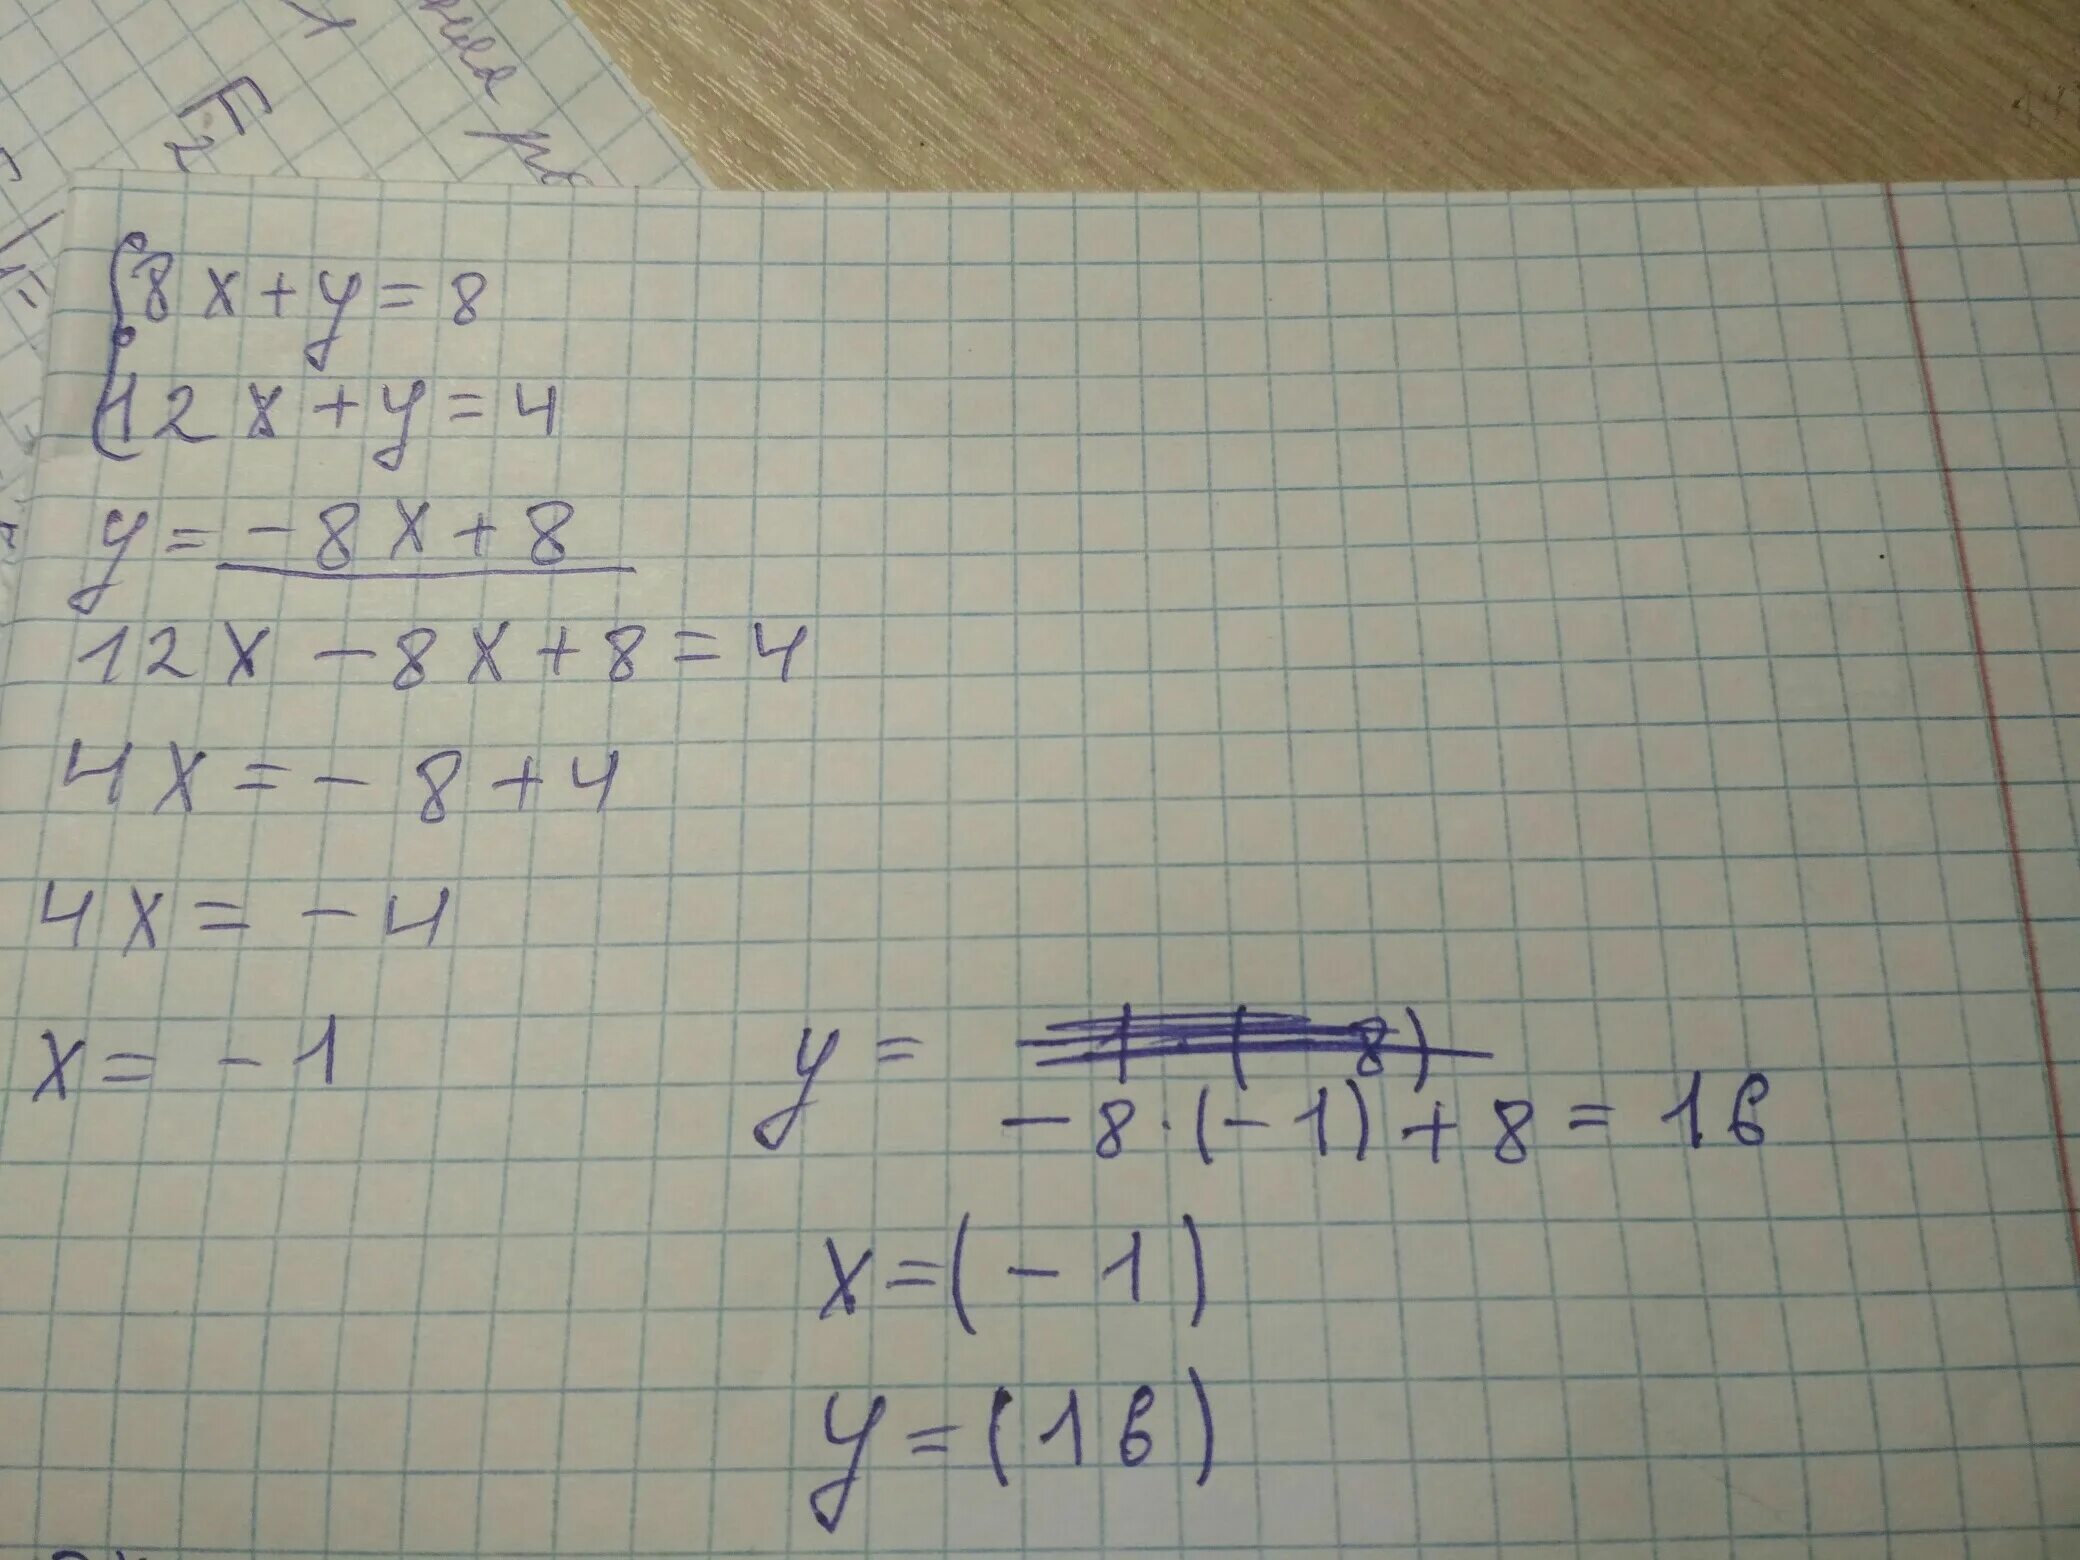 F₂
8x+y=8
12x+y=4
y=-8x+8
12x-8x+8=4
4x=-8+4
4x=-4
x=-1
y=
-8·(-1)+8=16
x=(-1)
y=(16)